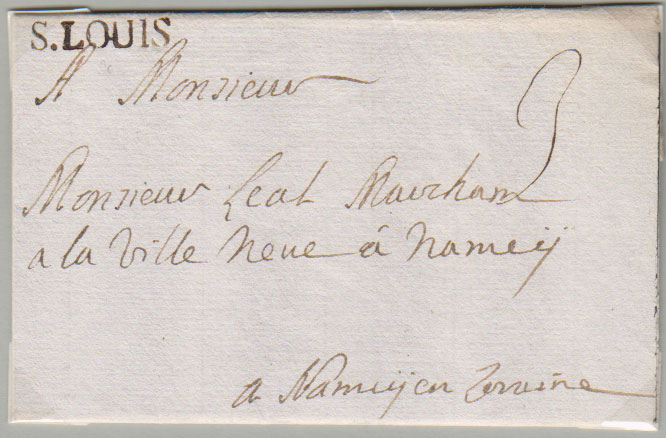 S.LOUIS
A Monsieur
3
Monsieur Leal Marchant
a la Ville Neue à Nancÿ
a Nancÿ en Loraine